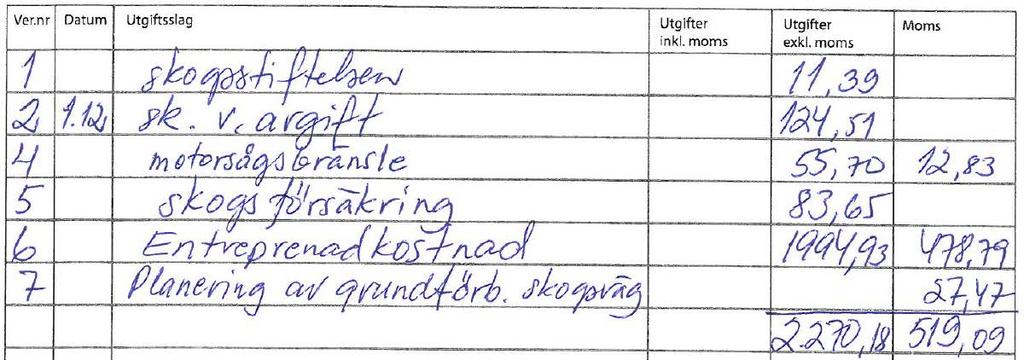 Ver.nr Datum Utgiftsslag Utgifter inkl. moms Utgifter exkl. moms Moms
1 skogsstiftelsen 11,39
2 1.12. sk. v. avgift 124,51
4 motorsågsbränsle 55,70 12,83
5 skogsförsäkring 83,65
6 Entreprenadkostnad 1994,93 478,79
7 Planering av grundförb. skogsväg 27,47
2.270,18 519,09